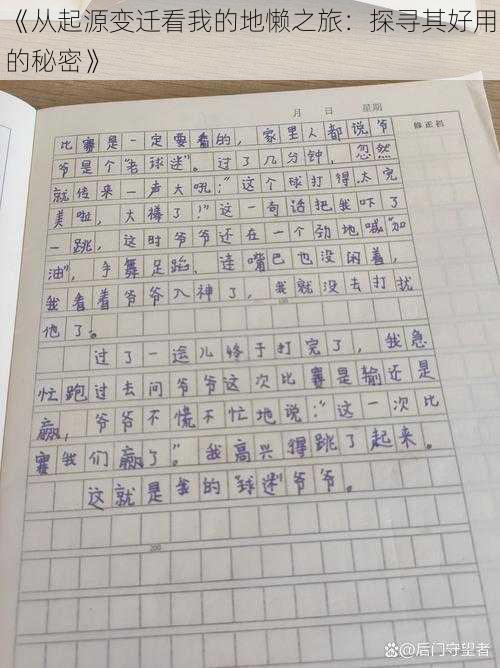 《从起源变迁看我的地懒之旅：探寻其好用
的秘密》
月 日 星期
修正栏
比赛是一定要看的，家里人都说爷
爷是个“老球迷”。过了几分钟，忽然
就传来一声大吼：“这个球打得太完
美啦，大棒了！”这一句话把我吓了
一跳，这时爷爷还在一个劲地喊“加
油”，手舞足蹈，连嘴巴也没闲着，
我看着爷爷入神了，我就没去打扰
他了。
过了一会儿终于打完了，我急
忙跑过去问爷爷这次比赛是输还是
赢，爷爷不慌不忙地说：“这一次比
赛我们赢了”。我高兴得跳了起来。
这就是我的“球迷”爷爷。
100
200
@后门守望者